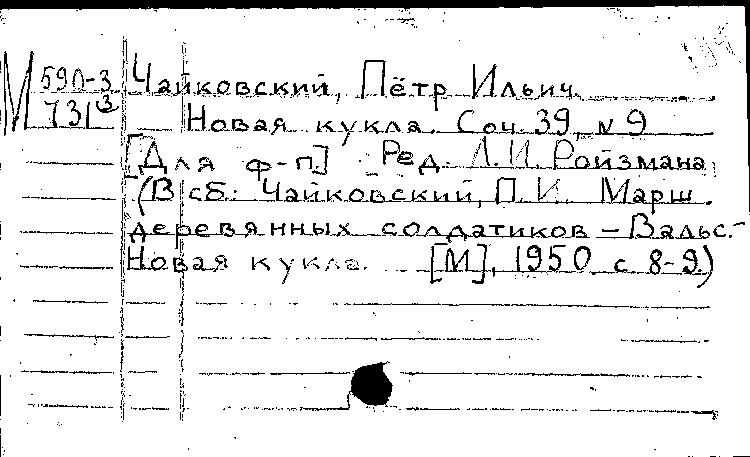 М 590-3 Чайковский, Пётр Ильич.
731³ Новая кукла. Соч. 39, № 9
[Для ф-п.] Ред. Л. И. Ройзмана
(В сб.: Чайковский, П. И. Марш.
деревянных солдатиков – Вальс.–
Новая кукла. [М], 1950. с. 8-9.)